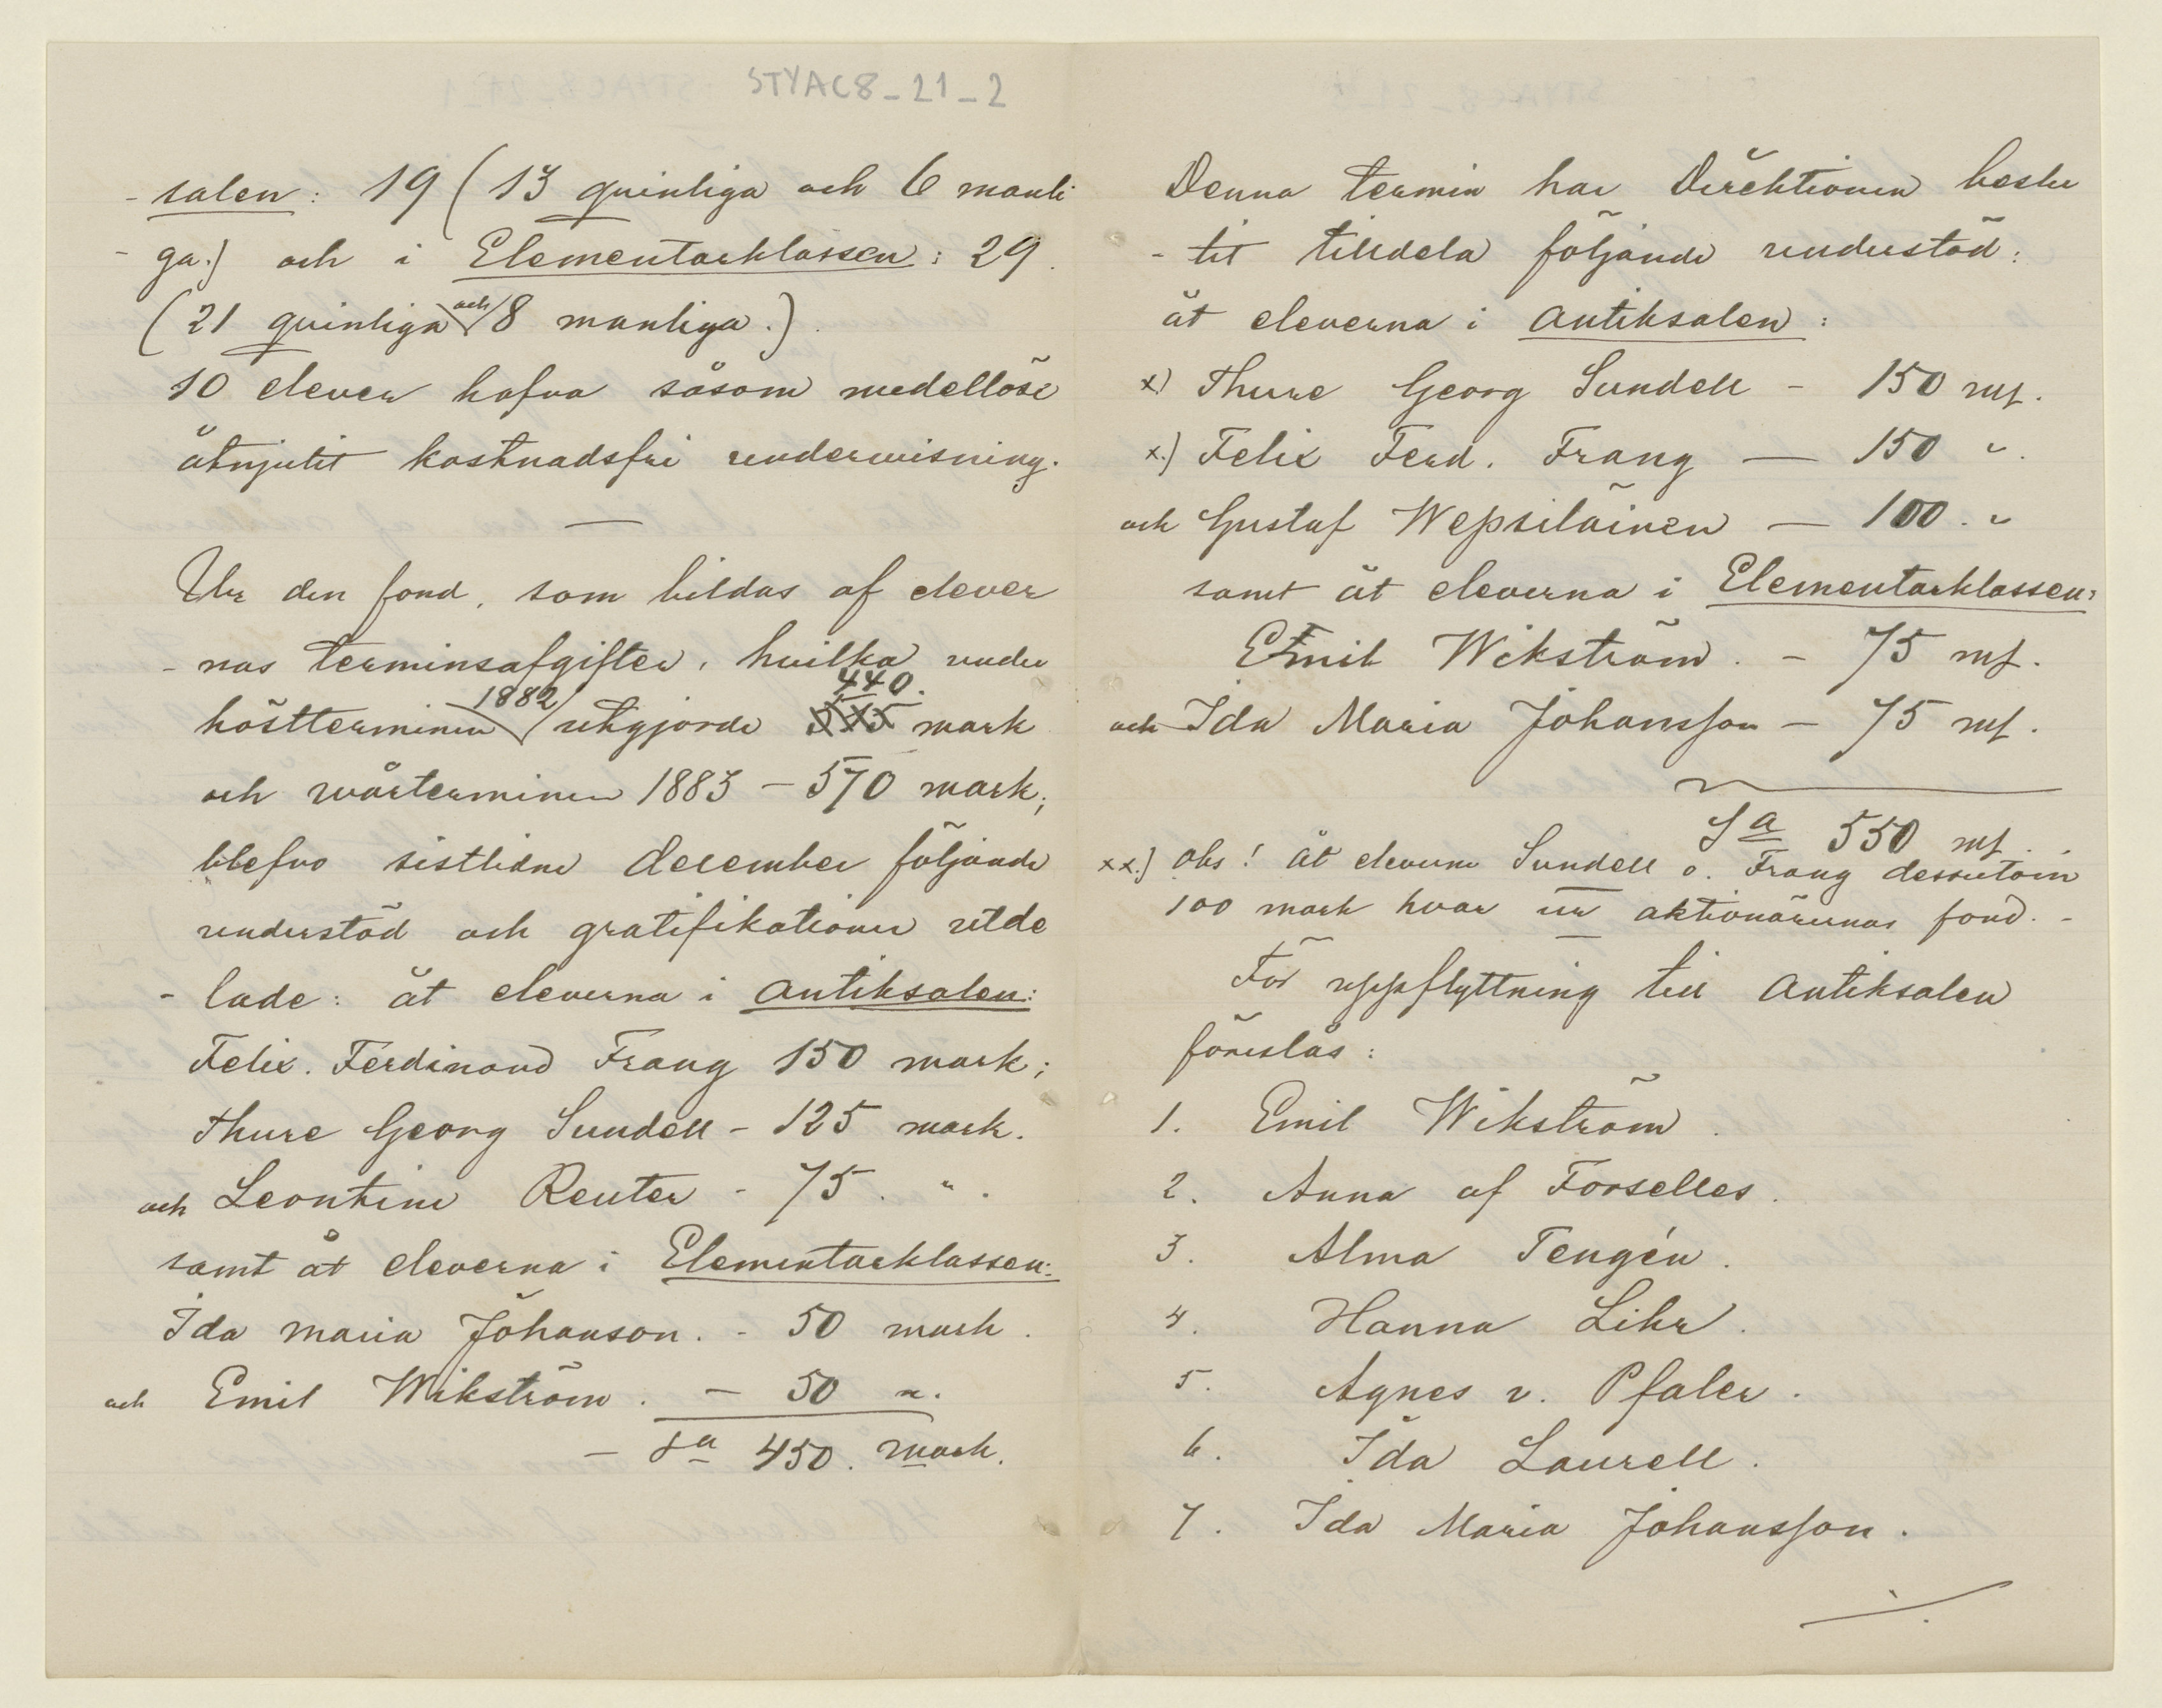 STYAC8_21_2
- salen: 19 (13 qvinliga och 6 manli
- ga.) och i Elementarklassen: 29.
(21 qvinliga och 8 manliga.).
10 elever hafva såsom medellöse
åtnjutit kostnadsfri undervisning.
Ur den fond, som bildas af elever
- nas terminsafgifter, hvilka under
höstterminen 1882 utgjorde 440. mark
och vårterminen 1883 – 570 mark;
blefvo sistlidne december följande
understöd och gratifikationer utde
- lade: åt eleverna i Antiksalen:
Felix. Ferdinand Frang 150 mark;
Thure Georg Sundell – 125 mark.
och Leontine Reuter – 75. ".
samt åt eleverna i Elementarklassen:
Ida Maria Johanson. – 50 mark.
och Emil Wikström. – 50 ".
– Sa 450. mark.
Denna termin har Direktionen beslu
- tit tilldela följande understöd:
åt eleverna i Antiksalen:
x) Thure Georg Sundell – 150 mf.
x.) Felix Ferd. Frang — 150 ".
och Gustaf Wepsiläinen — 100. "
samt åt eleverna i Elementarklassen:
Emil Wikström. – 75 mf.
och Ida Maria Johansson – 75 mf.
Sa 550 mf.
xx.) Obs! Åt eleverne Sundell o. Frang dessutom
100 mark hvar ur aktionärernas fond. –
För uppflyttning till Antiksalen
föreslås:
1. Emil Wikström.
2. Anna af Forselles.
3. Alma Tengén.
4. Hanna Lihr.
5. Agnes v. Pfaler.
6. Ida Laurell.
7. Ida Maria Johansson.